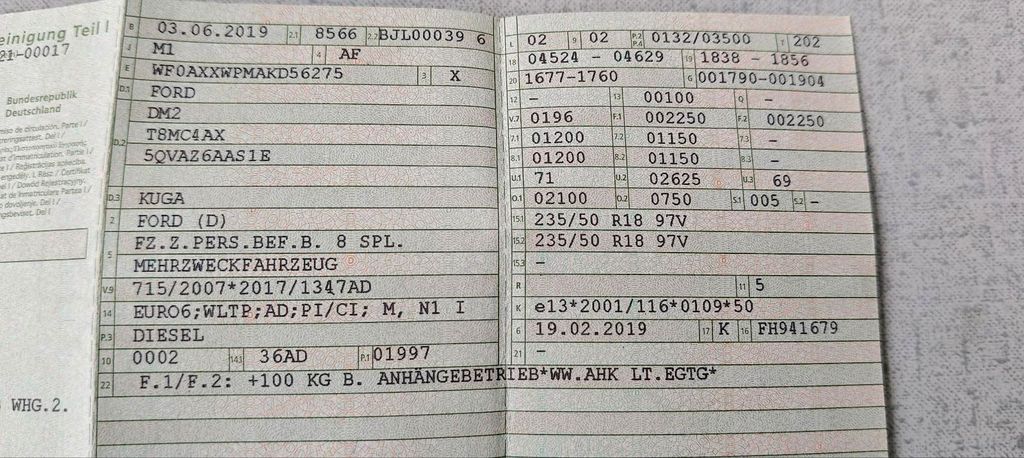 einigung Teil I
21-00017
Bundesrepublik
Deutschland
WHG.2.
B 03.06.2019 2.1 8566 2.2 BJL00039 6
J M1 4 AF
E WF0AXXWPMAKD56275 3 X
D.1 FORD
DM2
D.2 T8MC4AX
5QVAZ6AAS1E
D.3 KUGA
2 FORD (D)
5 FZ.Z.PERS.BEF.B. 8 SPL.
MEHRZWECKFAHRZEUG
V.9 715/2007*2017/1347AD
14 EURO6;WLTP;AD;PI/CI; M, N1 I
P.3 DIESEL
10 0002 14.1 36AD P.1 01997
22 F.1/F.2: +100 KG B. ANHÄNGEBETRIEB*WW.AHK LT.EGTG*
L 02 9 02 P.2 P.4 0132/03500 T 202
18 04524 - 04629 19 1838 - 1856
20 1677-1760 G 001790-001904
12 - 13 00100 Q -
V.7 0196 F.1 002250 F.2 002250
7.1 01200 7.2 01150 7.3 -
8.1 01200 8.2 01150 8.3 -
U.1 71 U.2 02625 U.3 69
O.1 02100 O.2 0750 S.1 005 S.2 -
15.1 235/50 R18 97V
15.2 235/50 R18 97V
15.3 -
R 11 5
K e13*2001/116*0109*50
6 19.02.2019 17 K 16 FH941679
21 -